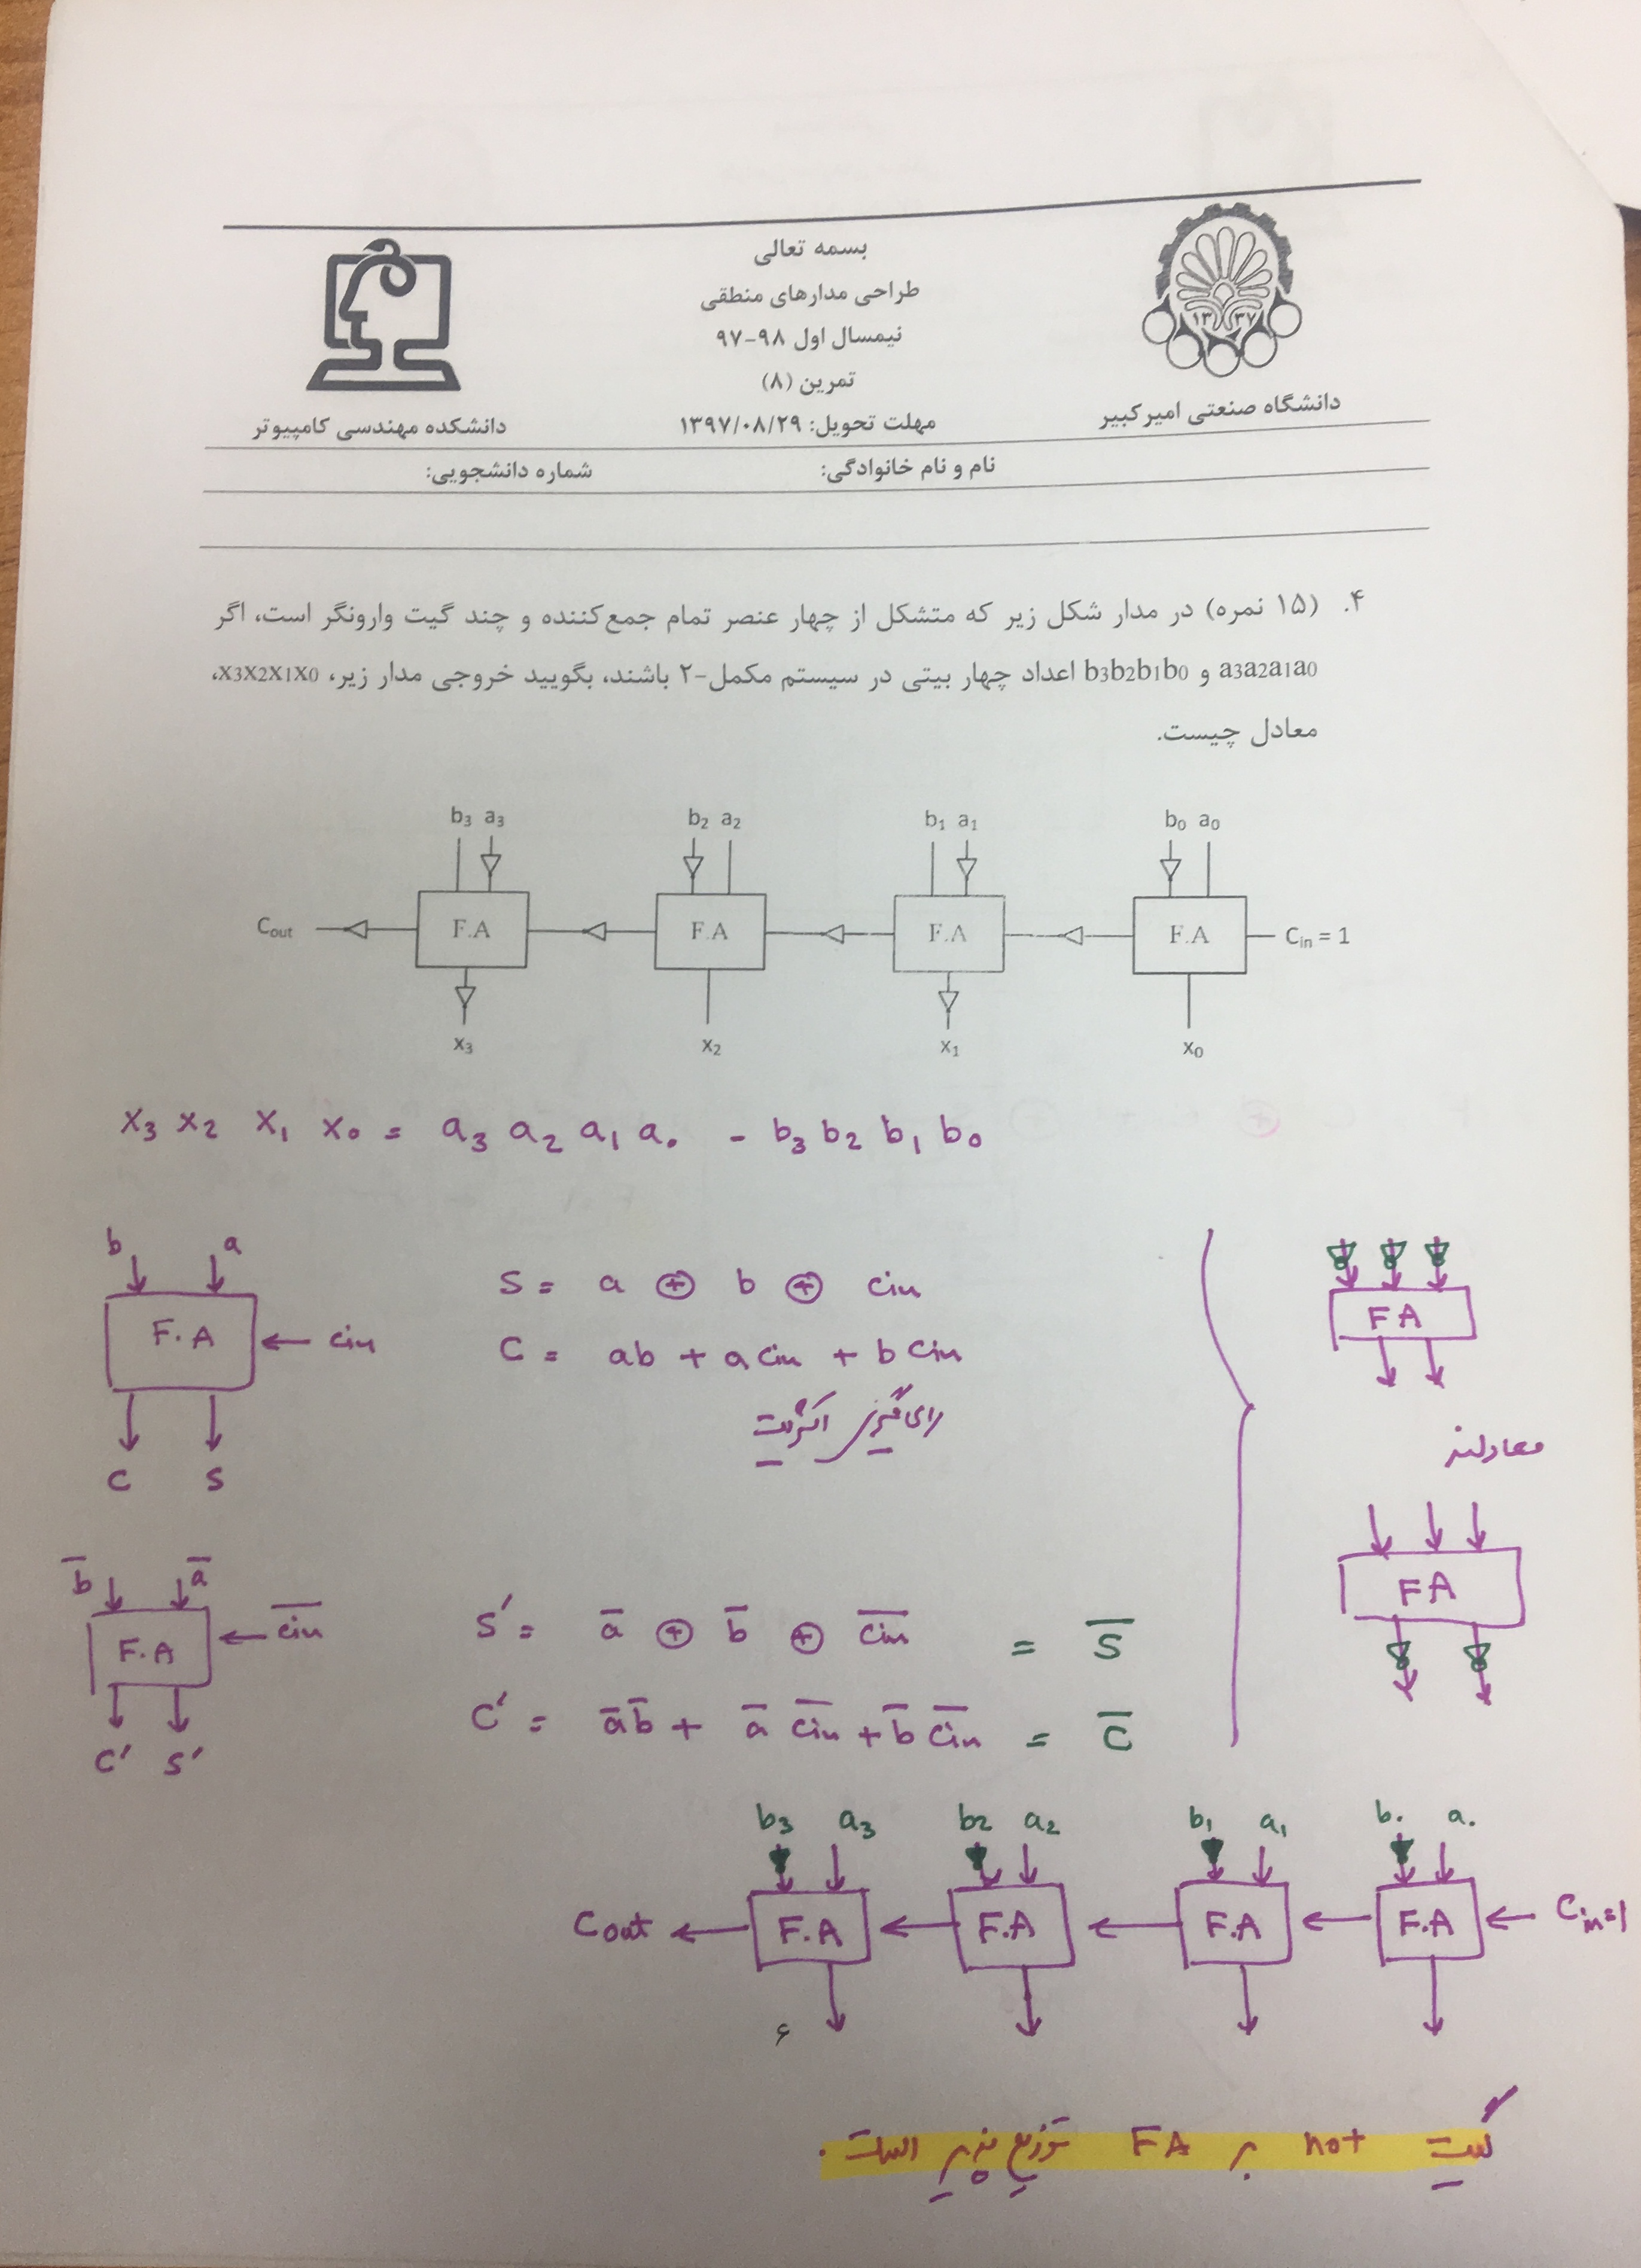 بسمه تعالی
طراحی مدارهای منطقی
نیمسال اول ۹۸-۹۷
تمرین (۸)
مهلت تحویل: ۱۳۹۷/۰۸/۲۹
۱۳ ۳۷
دانشگاه صنعتی امیرکبیر
دانشکده مهندسی کامپیوتر
نام و نام خانوادگی: شماره دانشجویی:
۴. (۱۵ نمره) در مدار شکل زیر که متشکل از چهار عنصر تمام جمع‌کننده و چند گیت وارونگر است، اگر
a3a2a1a0 و b3b2b1b0 اعداد چهار بیتی در سیستم مکمل-۲ باشند، بگویید خروجی مدار زیر، x3x2x1x0،
معادل چیست.
b3 a3 b2 a2 b1 a1 b0 a0
Cout F.A F.A F.A F.A Cin = 1
x3 x2 x1 x0
x3 x2 x1 x0 = a3 a2 a1 a0 - b3 b2 b1 b0
b a
F.A cin
C S
S = a ⊕ b ⊕ cin
C = ab + a cin + b cin
رای گیر اکثریت
FA
معادلند
FA
b̅ a̅
F.A c̅i̅n̅
C' S'
S' = a̅ ⊕ b̅ ⊕ c̅i̅n̅ = S̅
C' = a̅ b̅ + a̅ c̅i̅n̅ + b̅ c̅i̅n̅ = C̅
b3 a3 b2 a2 b1 a1 b0 a0
Cout F.A F.A F.A F.A Cin=1
۶
گیت not بر FA توزیع پذیر است.